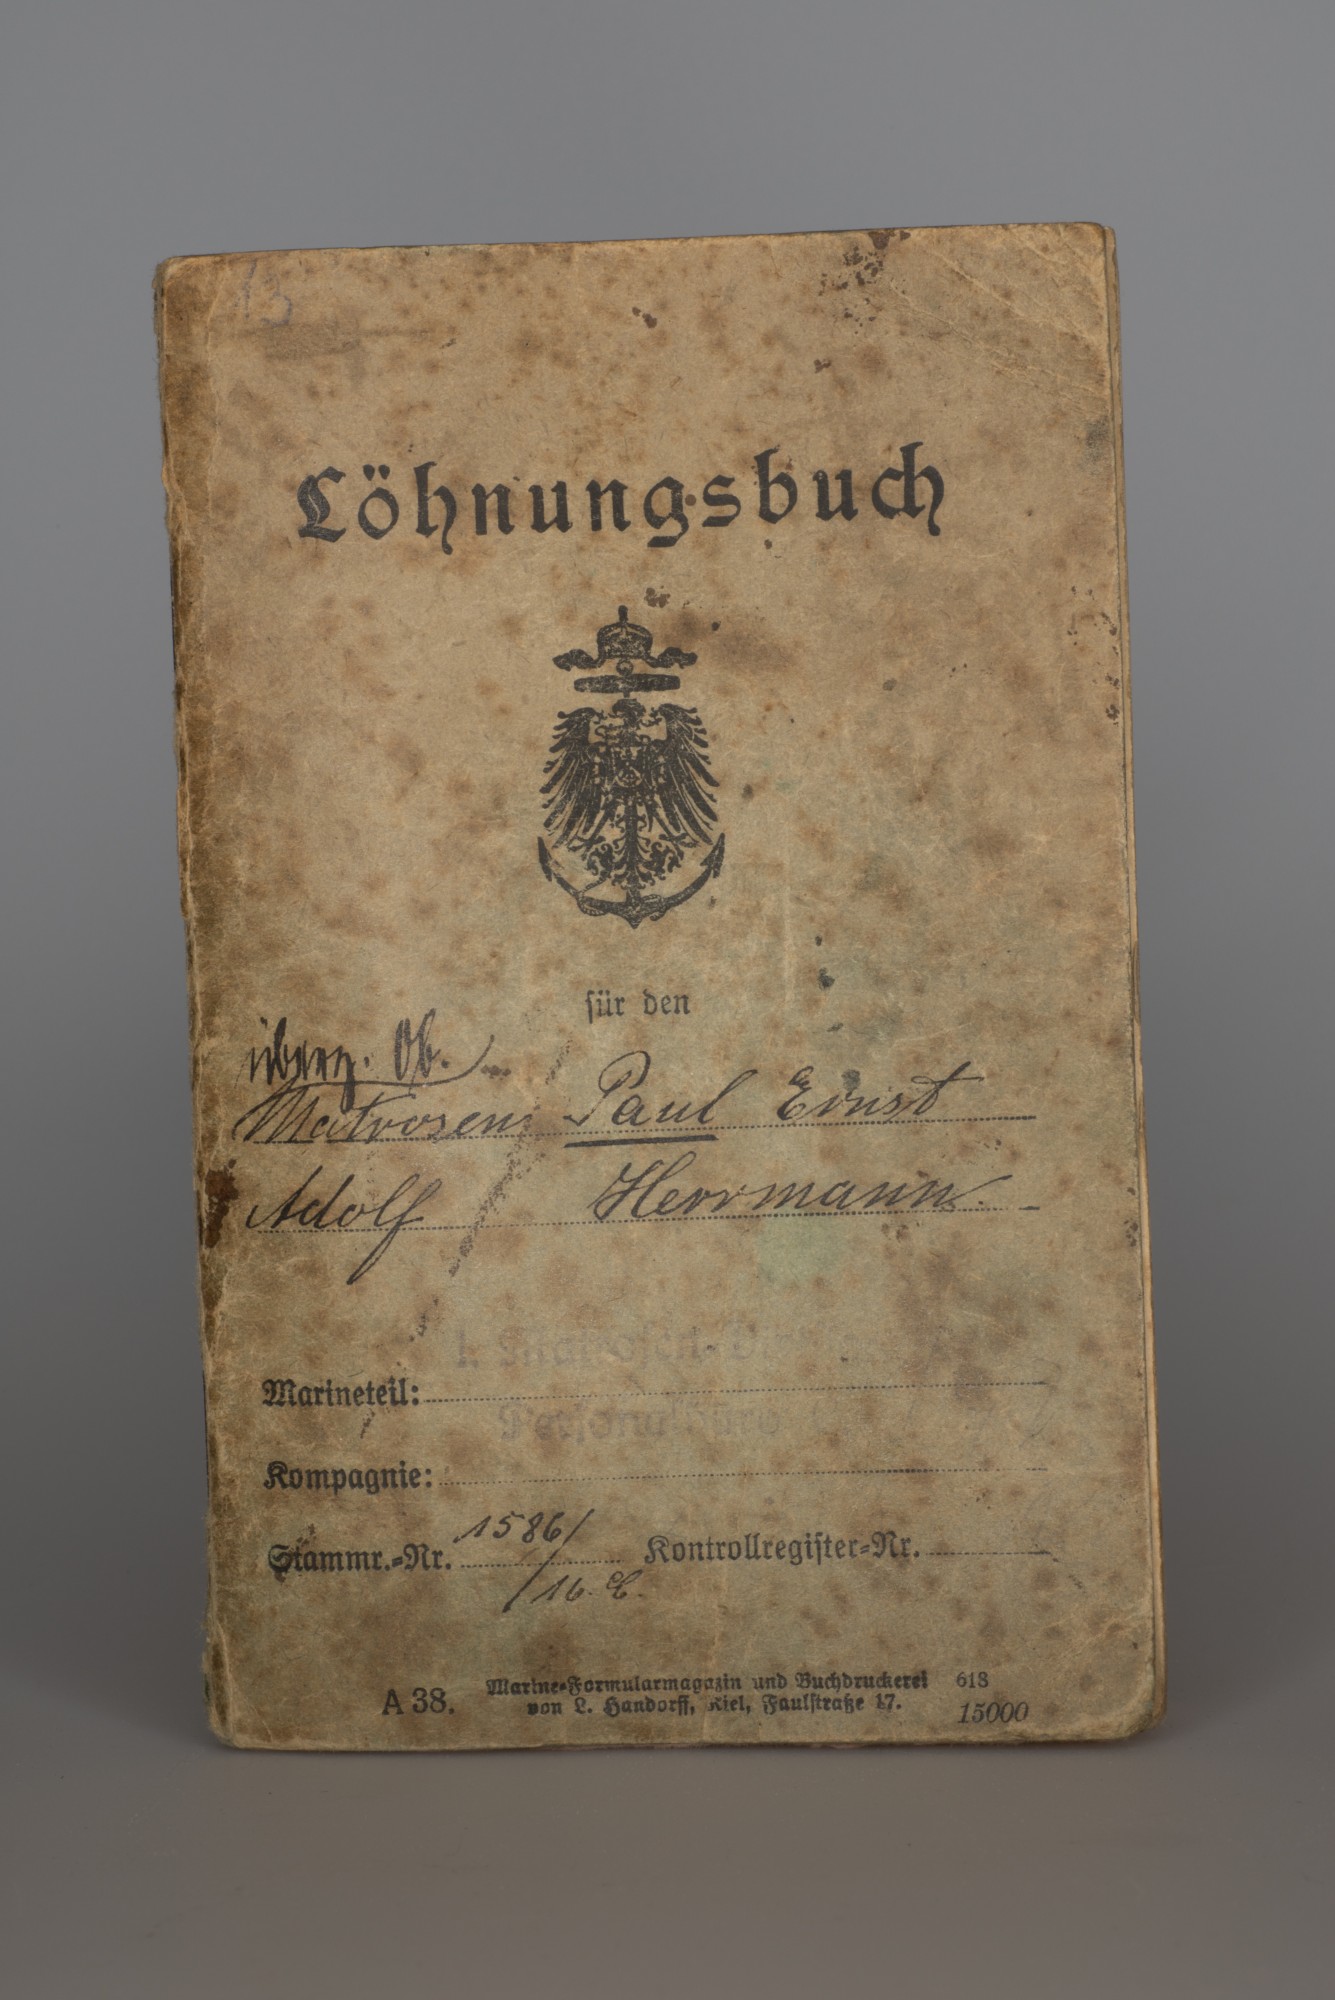 13
Löhnungsbuch
für den
überz. Ob.
Matrosen Paul Ernst
Adolf Herrmann
I. Matrosen-
Marineteil:
Personalbüro
Kompagnie:
Stammr.-Nr. 1586/16. C. Kontrollregister-Nr.
A 38. Marine-Formularmagazin und Buchdruckerei 618
von L. Handorff, Kiel, Faulstraße 17. 15000